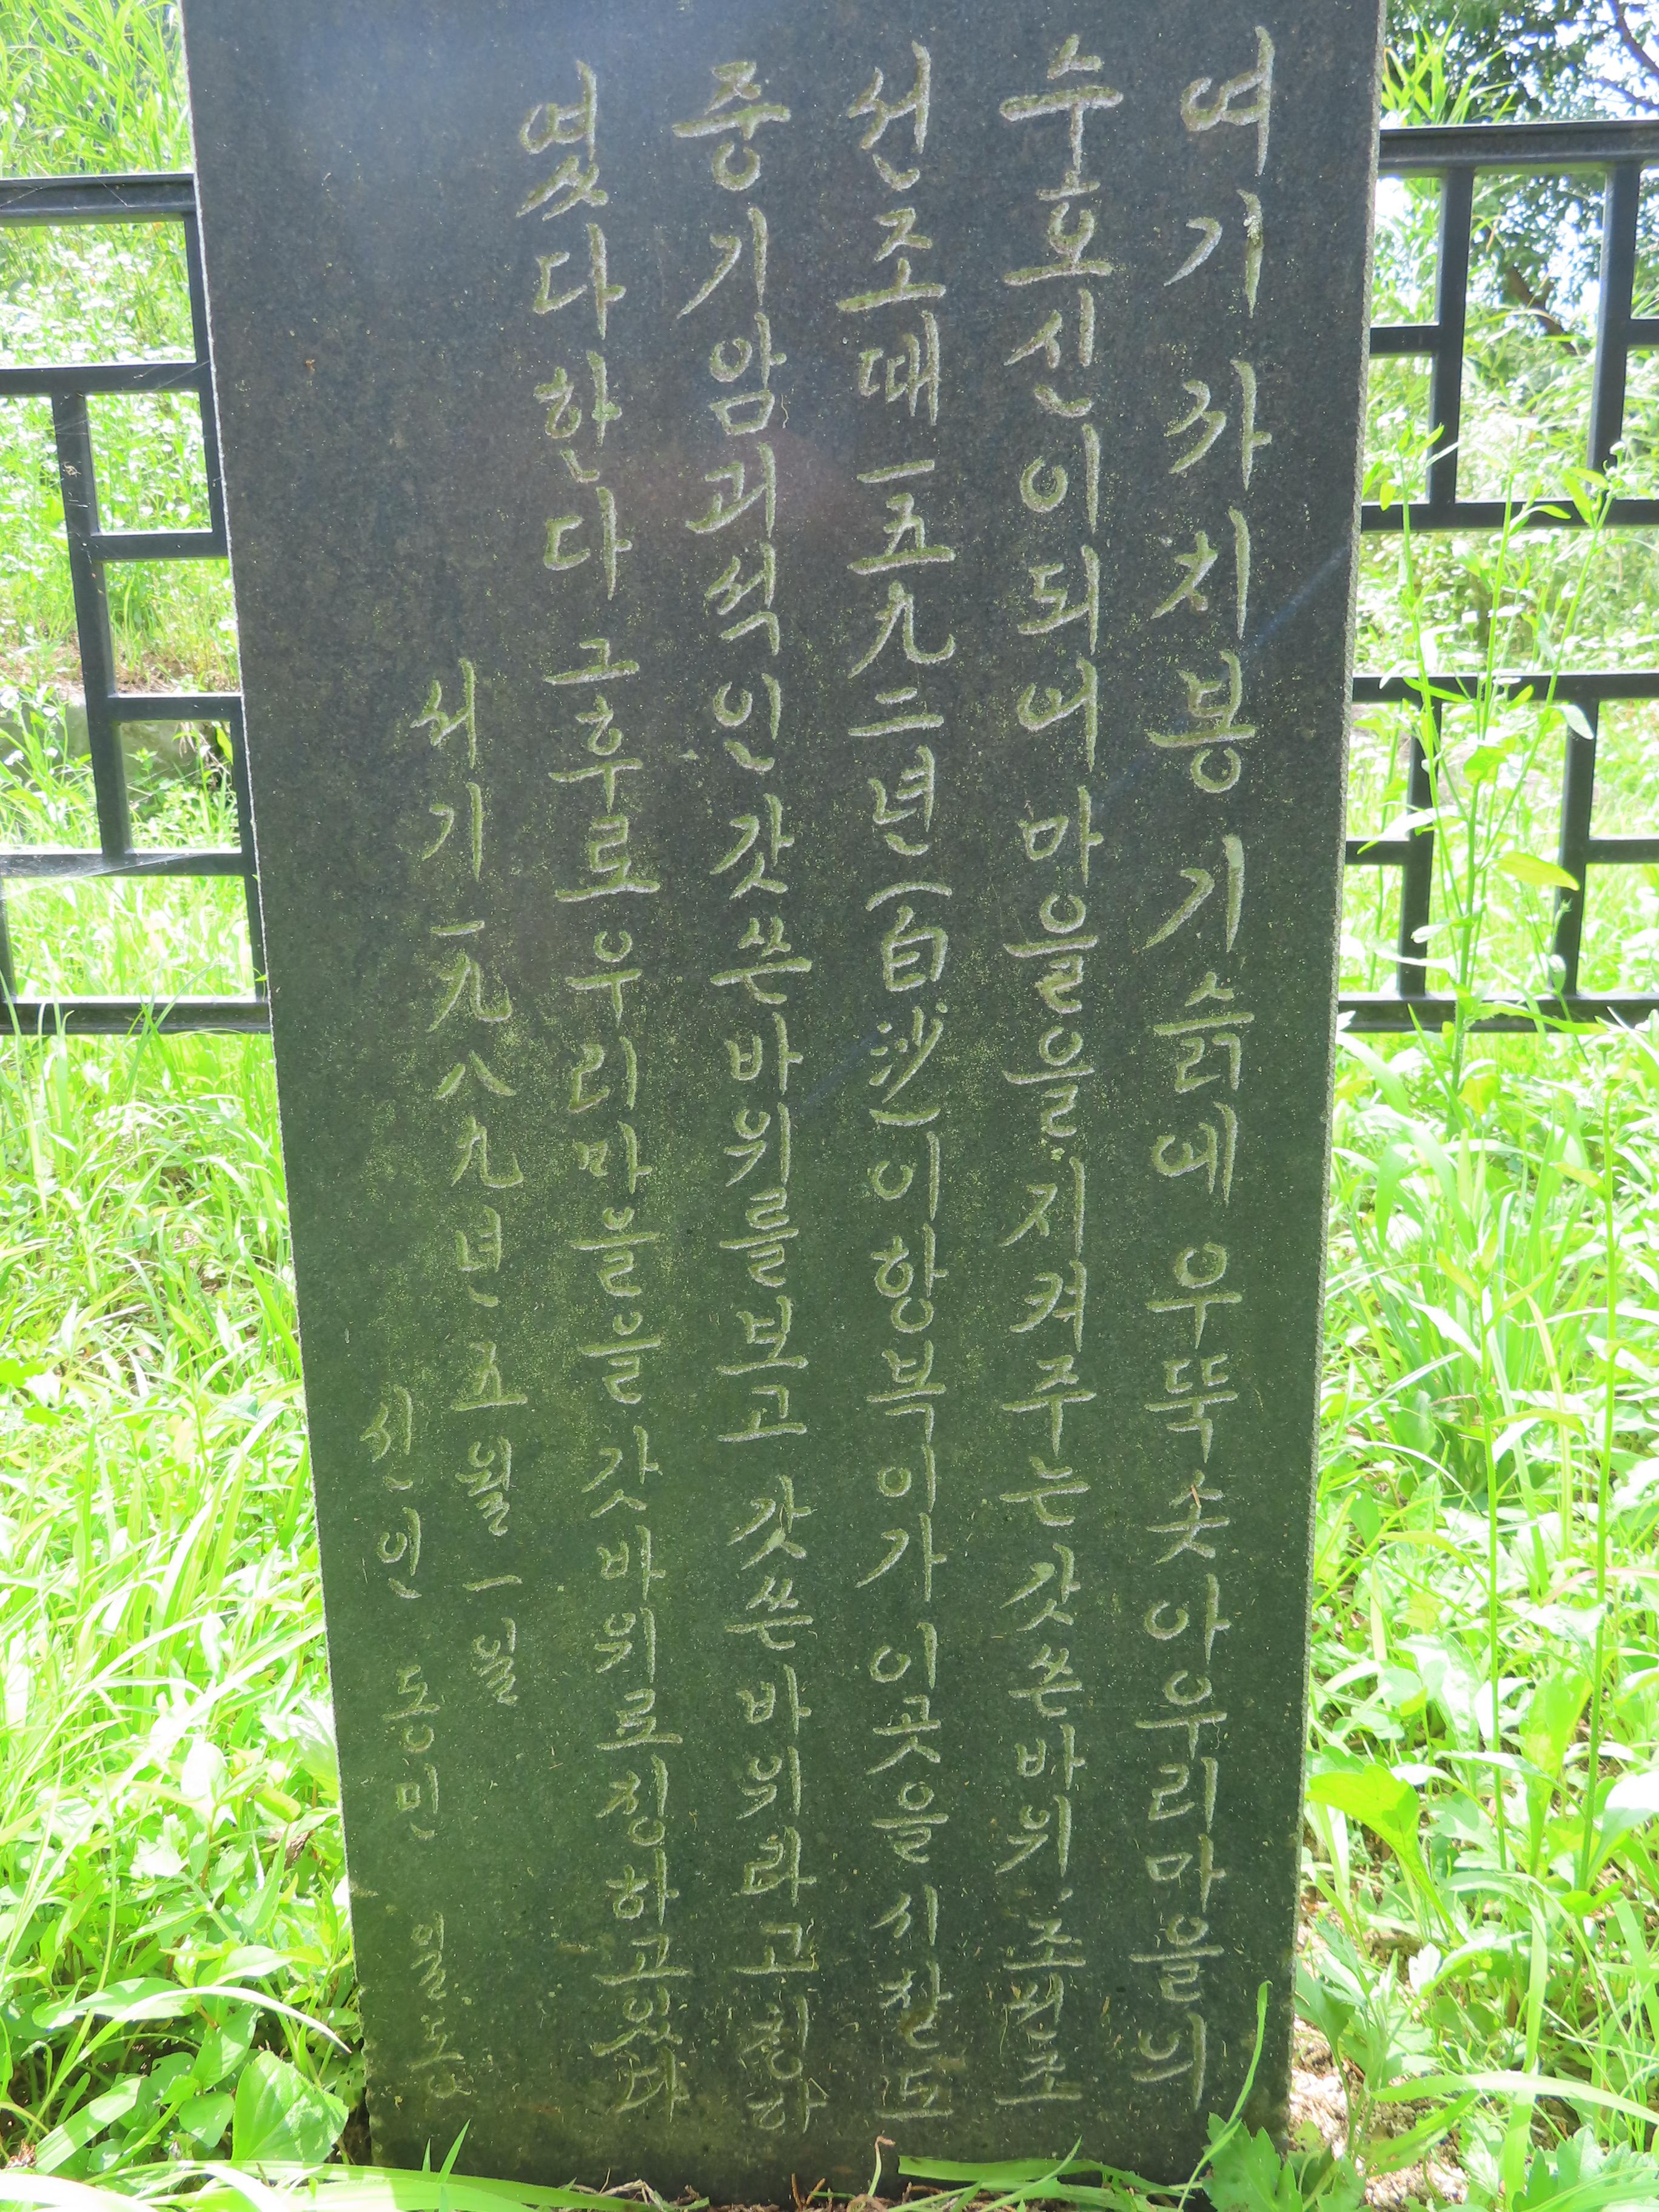 여기 까치봉 기슭에 우뚝솟아우리마을의
수호신이되어 마을을 지켜주는 갓쓴바위 조선조
선조때 一五九二년(白沙)이항복이가 이곳을 시찰도
중 기암괴석인 갓쓴바위를보고 갓쓴바위라고 칭하
였다한다 그후로우리마을을 갓바위로칭하고있다
서기 一九八九년 五월 一일
신인 동민 일동